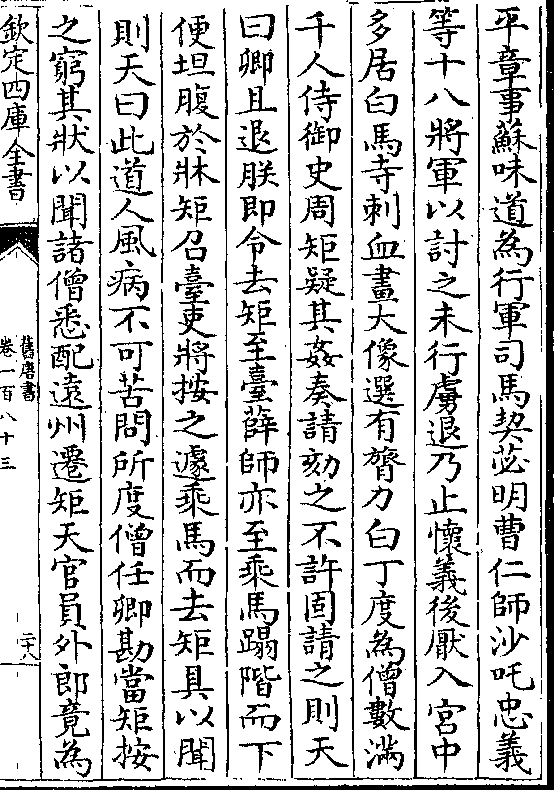 平章事蘇味道為行軍司馬契苾明曹仁師沙吒忠義
等十八將軍以討之未行虜退乃止懷義後厭入宮中
多居白馬寺刺血畫大像選有膂力白丁度為僧數滿
千人侍御史周矩疑其姦奏請劾之不許固請之則天
曰卿且退朕即令去矩至臺薛師亦至乘馬蹋階而下
便坦腹於牀矩召臺吏將按之遽乘馬而去矩具以聞
則天曰此道人風病不可苦問所度僧任卿勘當矩按
之窮其狀以聞諸僧悉配遠州遷矩天官員外郎竟為
欽定四庫全書
舊唐書
卷一百八十三
二十八